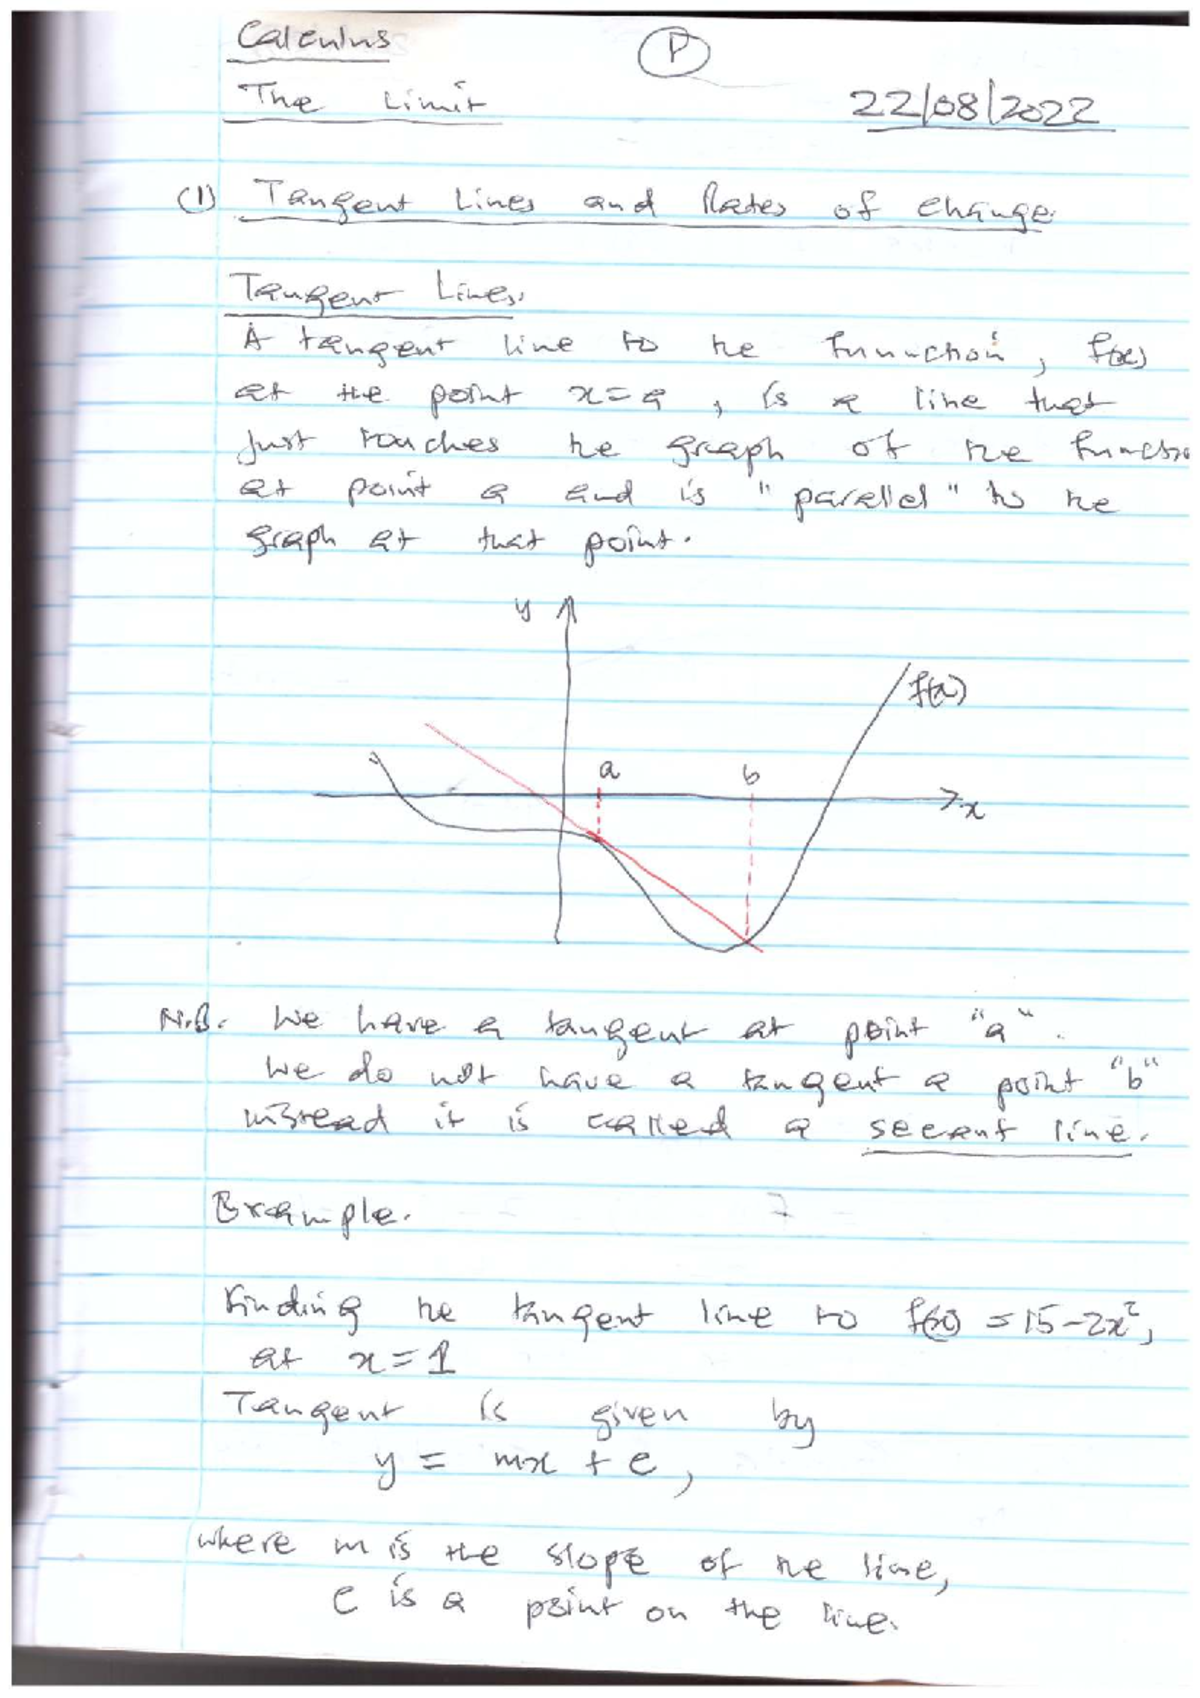 Calculus
P
The Limit
22/08/2022
(1) Tangent Lines and Rates of change.
Tangent Lines.
A tangent line to the function, f(x)
at the point x=a, is a line that
just touches the graph of the functio
at point a and is "parallel" to the
graph at that point.
y
f(x)
a b
x
N.B. We have a tangent at point "a".
We do not have a tangent a point "b"
instead it is called a secant line.
Example.
Finding the tangent line to f(x) = 15-2x²,
at x=1
Tangent is given by
y = mx + c,
where m is the slope of the line,
c is a point on the line.